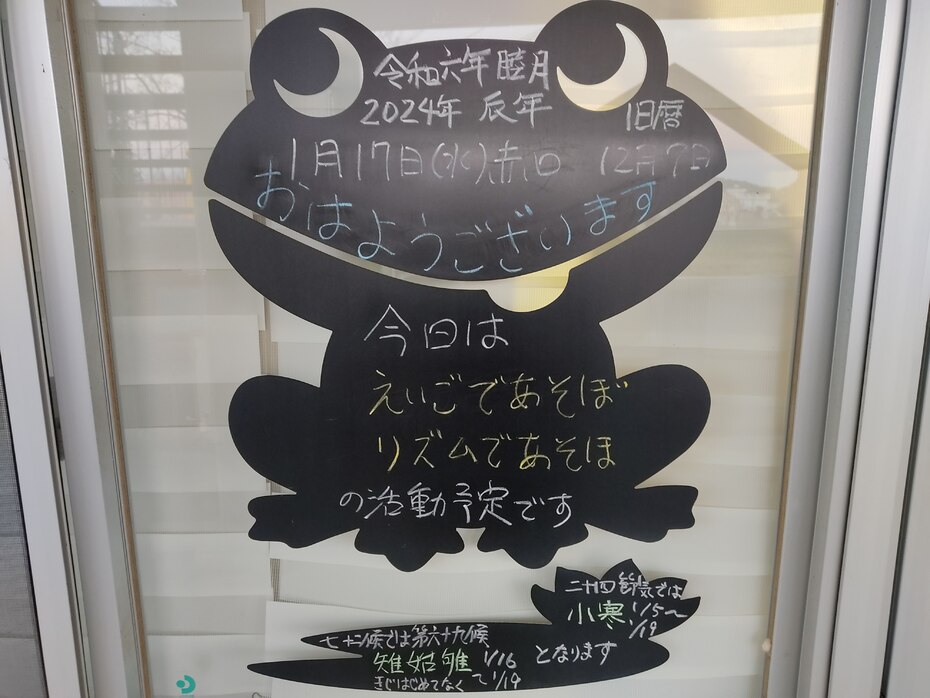 令和六年睦月
2024年 辰年 旧暦
1月17日(水)赤口 12月7日
おはようございます
今日は
えいごであそぼ
リズムであそぼ
の活動予定です
二十四節気では
小寒 1/5〜
1/19
七十二候では第六十九候
雉始雊 1/16
きじはじめてなく 〜1/19
となります